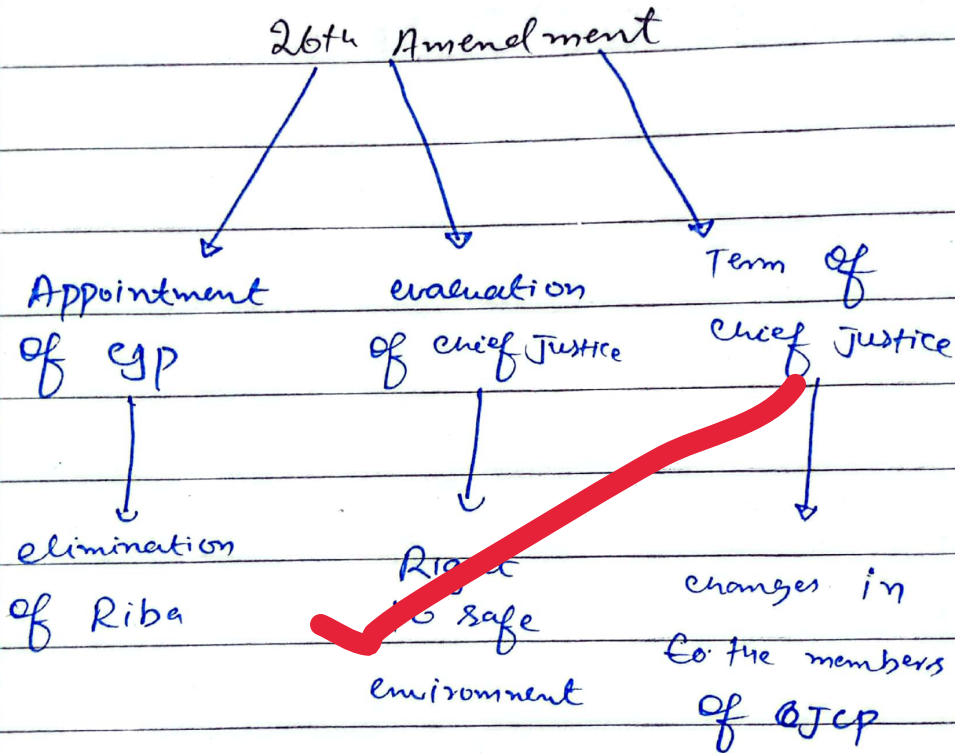 26th Amendment
Appointment
of CJP
evaluation
of chief Justice
Term of
chief justice
elimination
of Riba
Right
to safe
environment
changes in
to the members
of JCP